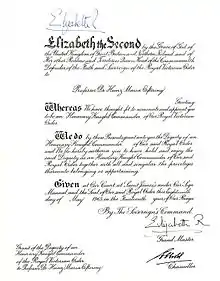 Elizabeth R
Elizabeth the Second by the Grace of God of
the United Kingdom of Great Britain and Northern Ireland and of
Her other Realms and Territories Queen, Head of the Commonwealth,
Defender of the Faith and Sovereign of the Royal Victorian Order
to
Professor Dr. Hans Maria
Greeting
Whereas We have thought fit to nominate and appoint
you to be an Honorary Knight Commander of Our Royal Victorian
Order
We do by these Presents grant unto you the Dignity of an
Honorary Knight Commander of Our said Royal Order
and We do hereby authorise you to have hold and enjoy the
said Dignity as an Honorary Knight Commander of Our said
Royal Order together with all and singular the privileges
thereunto belonging or appertaining
Given at Our Court at Saint James's under Our Sign
Manual and the Seal of Our said Royal Order this eighteenth
day of May 1965 in the Fourteenth year of Our Reign
By The Sovereign's Command.
Elizabeth R
Grand Master
Grant of the Dignity of an
Honorary Knight Commander
of the Royal Victorian Order
to Professor Dr. Hans Maria
Chancellor